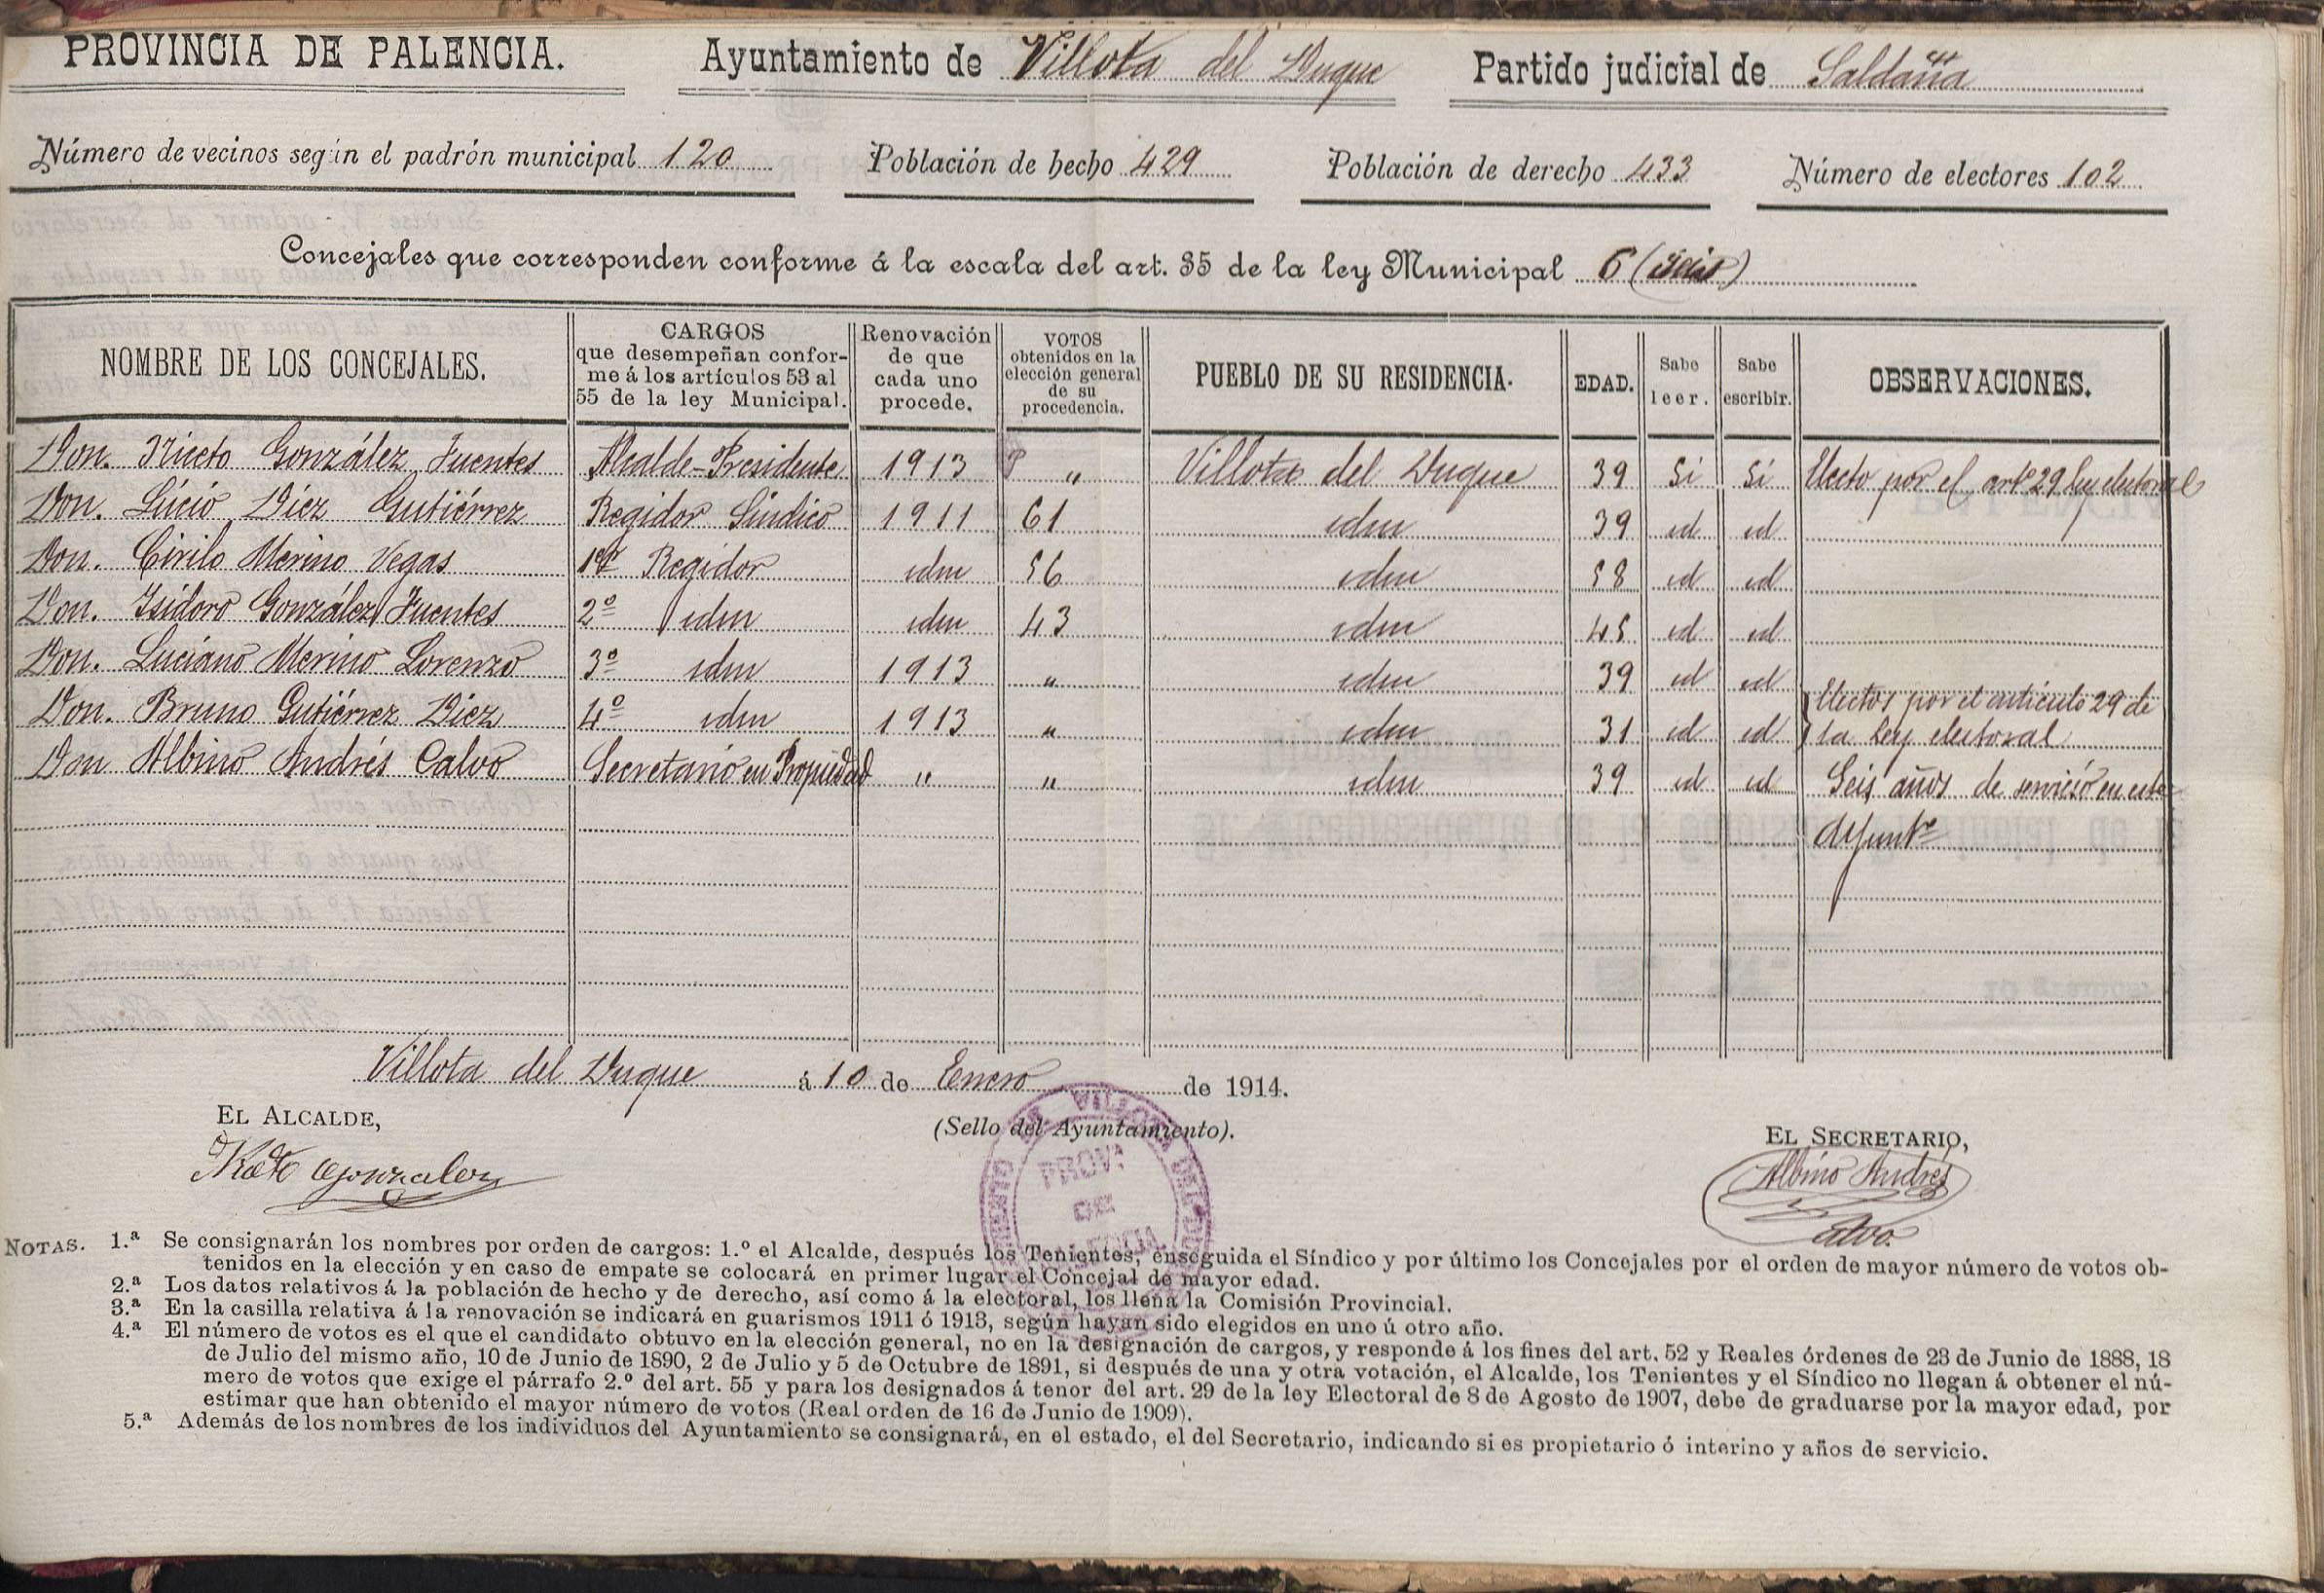 PROVINCIA DE PALENCIA. Ayuntamiento de Villota del Duque Partido judicial de Saldaña
Número de vecinos según el padrón municipal 120 Población de hecho 429 Población de derecho 433 Número de electores 102
Concejales que corresponden conforme á la escala del art. 35 de la ley Municipal 6 (seis)
NOMBRE DE LOS CONCEJALES. CARGOS que desempeñan confor- me á los artículos 53 al 55 de la ley Municipal. Renovación de que cada uno procede. VOTOS obtenidos en la elección general de su procedencia. PUEBLO DE SU RESIDENCIA. EDAD. Sabe leer. Sabe escribir. OBSERVACIONES.
Don. Niceto González Fuentes Alcalde-Presidente 1913 " Villota del Duque 39 Si Si Electo por el artº 29 ley electoral
Don. Lúcio Díez Gutiérrez Regidor Síndico 1911 61 idm 39 id id
Don. Cirilo Merino Vegas 1er Regidor idm 56 idm 58 id id
Don. Isidoro González Fuentes 2º idm idm 43 idm 45 id id
Don. Luciano Merino Lorenzo 3º idm 1913 " idm 39 id id
Don. Bruno Gutiérrez Díez 4º idm 1913 " idm 31 id id Electos por el artículo 29 de la ley electoral
Don Albino Andrés Calvo Secretario en Propiedad " " idm 39 id id Seis años de servicio en este Ayuntº
Villota del Duque á 10 de Enero de 1914.
EL ALCALDE, (Sello del Ayuntamiento). EL SECRETARIO,
Niceto Gonzalez Albino Andres
Calvo
VILLOTA DEL
PROVª
DE
NOTAS. 1.ª Se consignarán los nombres por orden de cargos: 1.º el Alcalde, después los Tenientes, enseguida el Síndico y por último los Concejales por el orden de mayor número de votos ob-
tenidos en la elección y en caso de empate se colocará en primer lugar el Concejal de mayor edad.
2.ª Los datos relativos á la población de hecho y de derecho, así como á la electoral, los llena la Comisión Provincial.
3.ª En la casilla relativa á la renovación se indicará en guarismos 1911 ó 1913, según hayan sido elegidos en uno ú otro año.
4.ª El número de votos es el que el candidato obtuvo en la elección general, no en la designación de cargos, y responde á los fines del art. 52 y Reales órdenes de 23 de Junio de 1888, 18
de Julio del mismo año, 10 de Junio de 1890, 2 de Julio y 5 de Octubre de 1891, si después de una y otra votación, el Alcalde, los Tenientes y el Síndico no llegan á obtener el nú-
mero de votos que exige el párrafo 2.º del art. 55 y para los designados á tenor del art. 29 de la ley Electoral de 8 de Agosto de 1907, debe de graduarse por la mayor edad, por
estimar que han obtenido el mayor número de votos (Real orden de 16 de Junio de 1909).
5.ª Además de los nombres de los individuos del Ayuntamiento se consignará, en el estado, el del Secretario, indicando si es propietario ó interino y años de servicio.